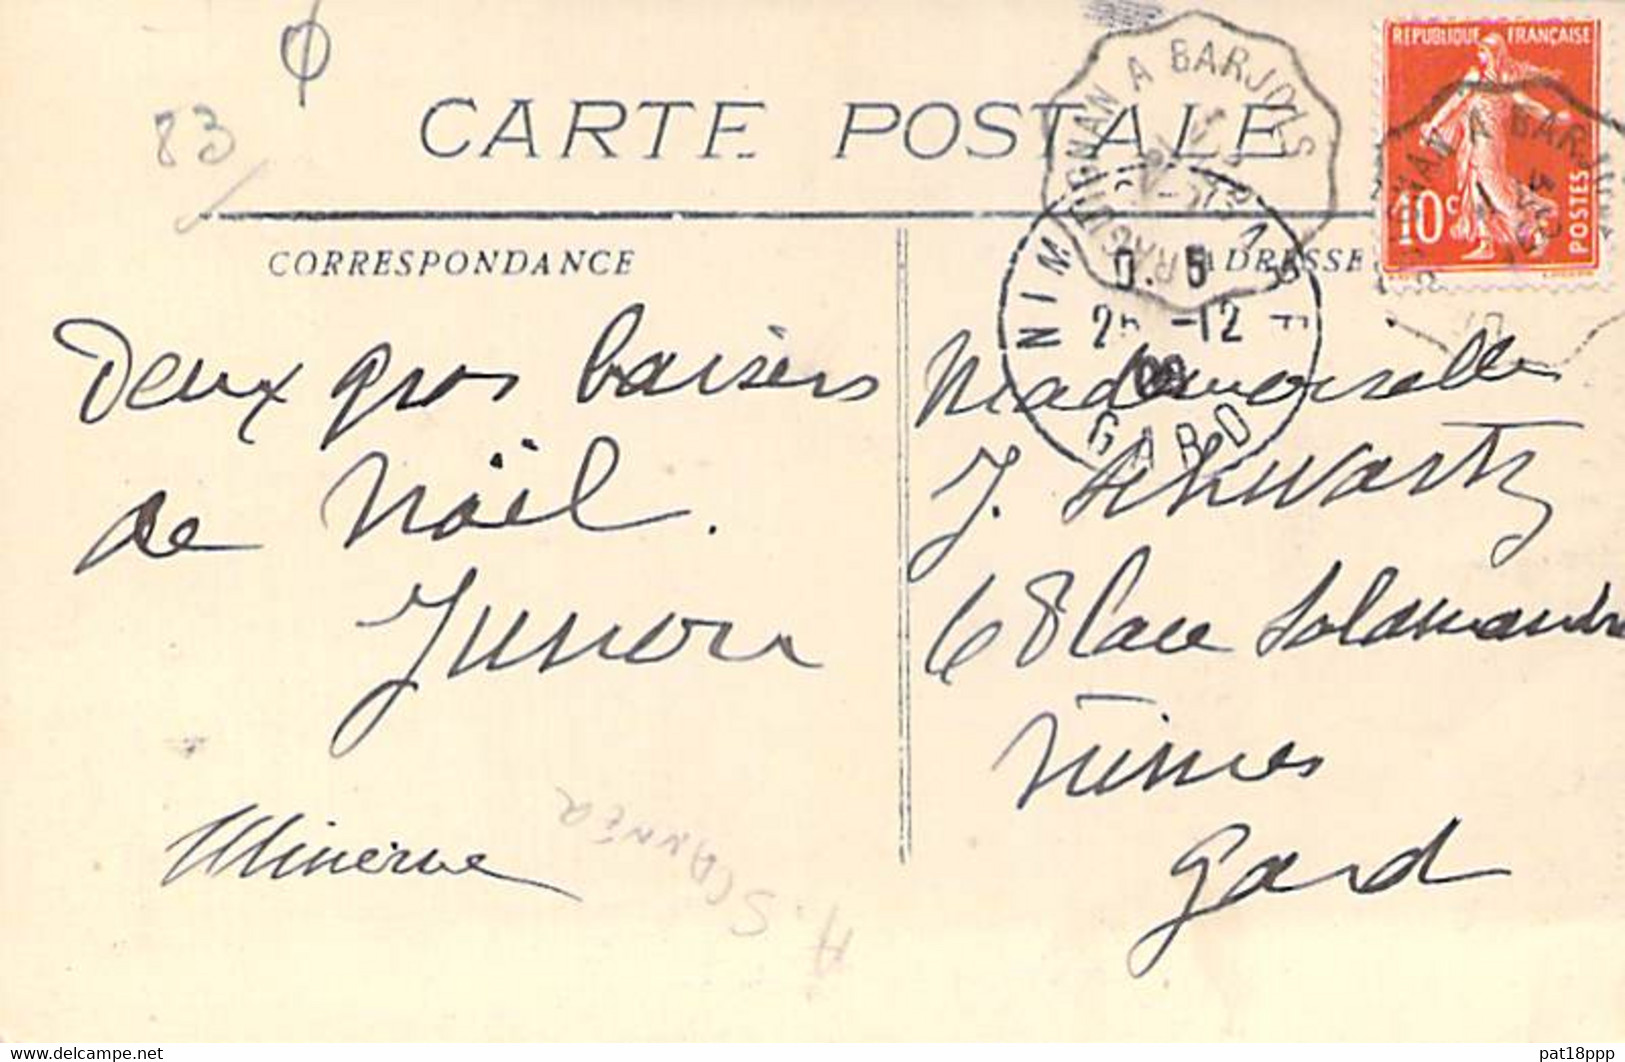 83
CARTE POSTALE
RÉPUBLIQUE FRANÇAISE
10c
POSTES
DRAGUIGNAN A BARJOLS
NIMES
25 -12
09
GARD
CORRESPONDANCE
ADRESSE
Deux gros baisers
de Noël.
Junon
Minerve
Mademoiselle
J. Schwartz
6 Place Salamandre
Nîmes
Gard
A SCANNER
www.delcampe.net
pat18ppp